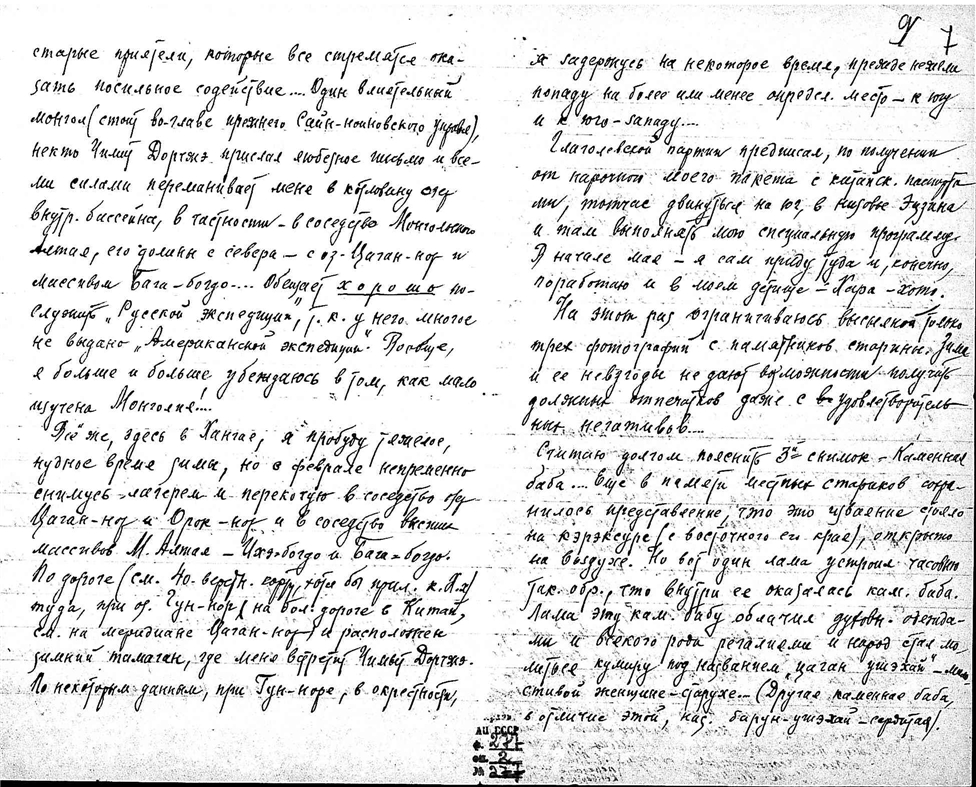 9 7
старые приятели, которые все стремятся ока-
зать посильное содействие.... Один влиятельный
монгол (стоит во-главе прежнего Сайн-ноиновского Управл),
некто Чимит Дорчжэ прислал любезное письмо и все-
ми силами переманивает меня в котловину озер
внутр. бассейна, в частности - в соседство Монгольского
Алтая, его долины с севера - с оз. Цаган-нор и
массивом Бага-богдо.... Обещает хорошо по-
служить „Русской экспедиции", т. к. у него многое
не выдано „Американской экспедиции". Вообще,
я больше и больше убеждаюсь в том, как мало
изучена Монголия....
Всё же, здесь в Хангае, я пробуду тяжелое,
нудное время зимы, но в феврале непременно
снимусь лагерем и перекочую в соседство озер
Цаган-нор и Орок-нор и в соседство высших
массивов М. Алтая - Ихэ-богдо и Бага-богдо.
По дороге (см. 40. верстн. карту, хотя бы прил. к
туда, при оз. Тун-нор (на бол. дороге в Китай,
см. на меридиане Цаган-нор) и расположен
зимний тамаган, где меня встретит Чимит Дорчжэ.
По некоторым данным, при Тун-норе, в окрестности,
я задержусь на некоторое время, прежде нежели
попаду на более или менее определ. место - к югу
и к юго-западу....
Глаголевской партии предписал, по получении
от нарочного моего пакета с китайск. паспорта-
ми, тотчас двинуться на юг, в низовье Эцзина
и там выполнять мою специальную программу.
В начале мая - я сам приду туда и, конечно,
поработаю и в моем детище - Хара-хото.
На этот раз ограничиваюсь высылкой только
трех фотографий с памятников старины. Зима
и ее невзгоды не дают возможности получить
должных отпечатков даже с удовлетворитель-
ных негативов....
Считаю долгом пояснить 3й снимок - Каменная
баба.... Еще в памяти местных стариков сохра-
нилось представление, что это изваяние стояло
на кэрэксуре (с восточного его края), открыто
на воздухе. Но вот один лама устроил часовню
так. обр., что внутри ее оказалась кам. баба.
Ламы эту кам. бабу облачил духовн. одежда-
ми и всякого рода регалиями и народ стал мо-
литься кумиру под названием „цаган ушэхай" - мило-
стивой женщине-старухе... (Другая каменная баба,
в отличие этой, наз. барун-ушэхай - сердитая).
АН СССР
ф. 237
оп. 2
№ 277